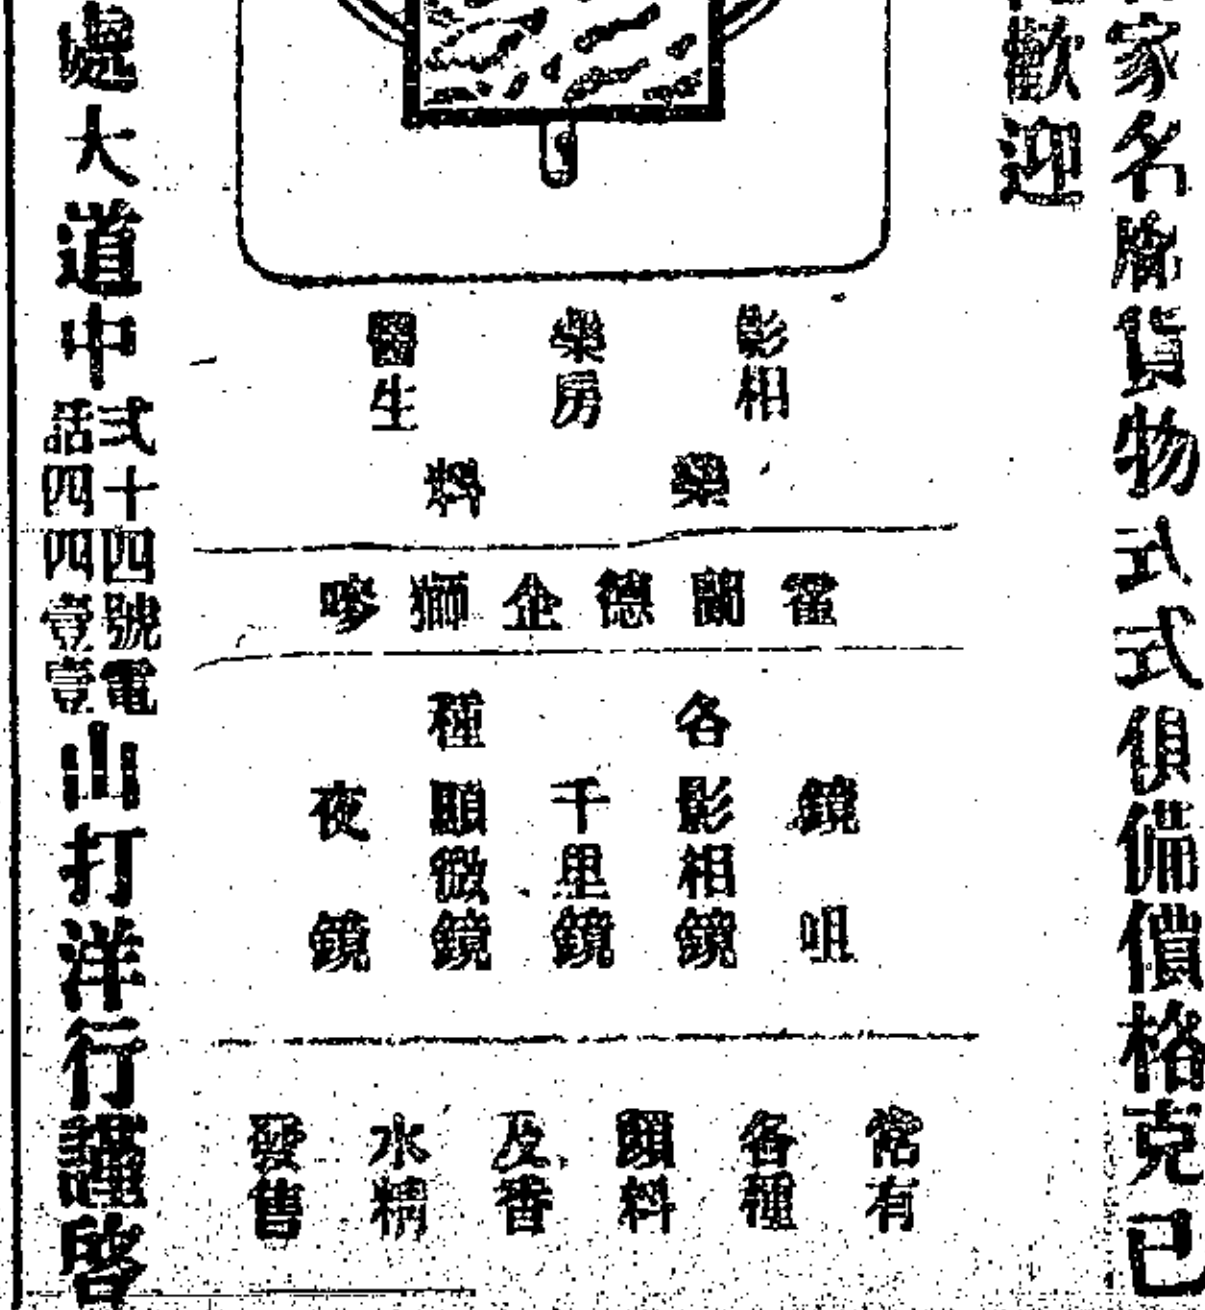 家名廠貨物式式俱備價格克已
歡迎
影相 藥房 醫生
藥料
霍蘭德企獅嘜
各種
鏡咀 影相鏡 千里鏡 顯微鏡 夜鏡
常有各種顏料及番水精發售
處大道中弍十四號電話四四壹壹山打洋行謹啓